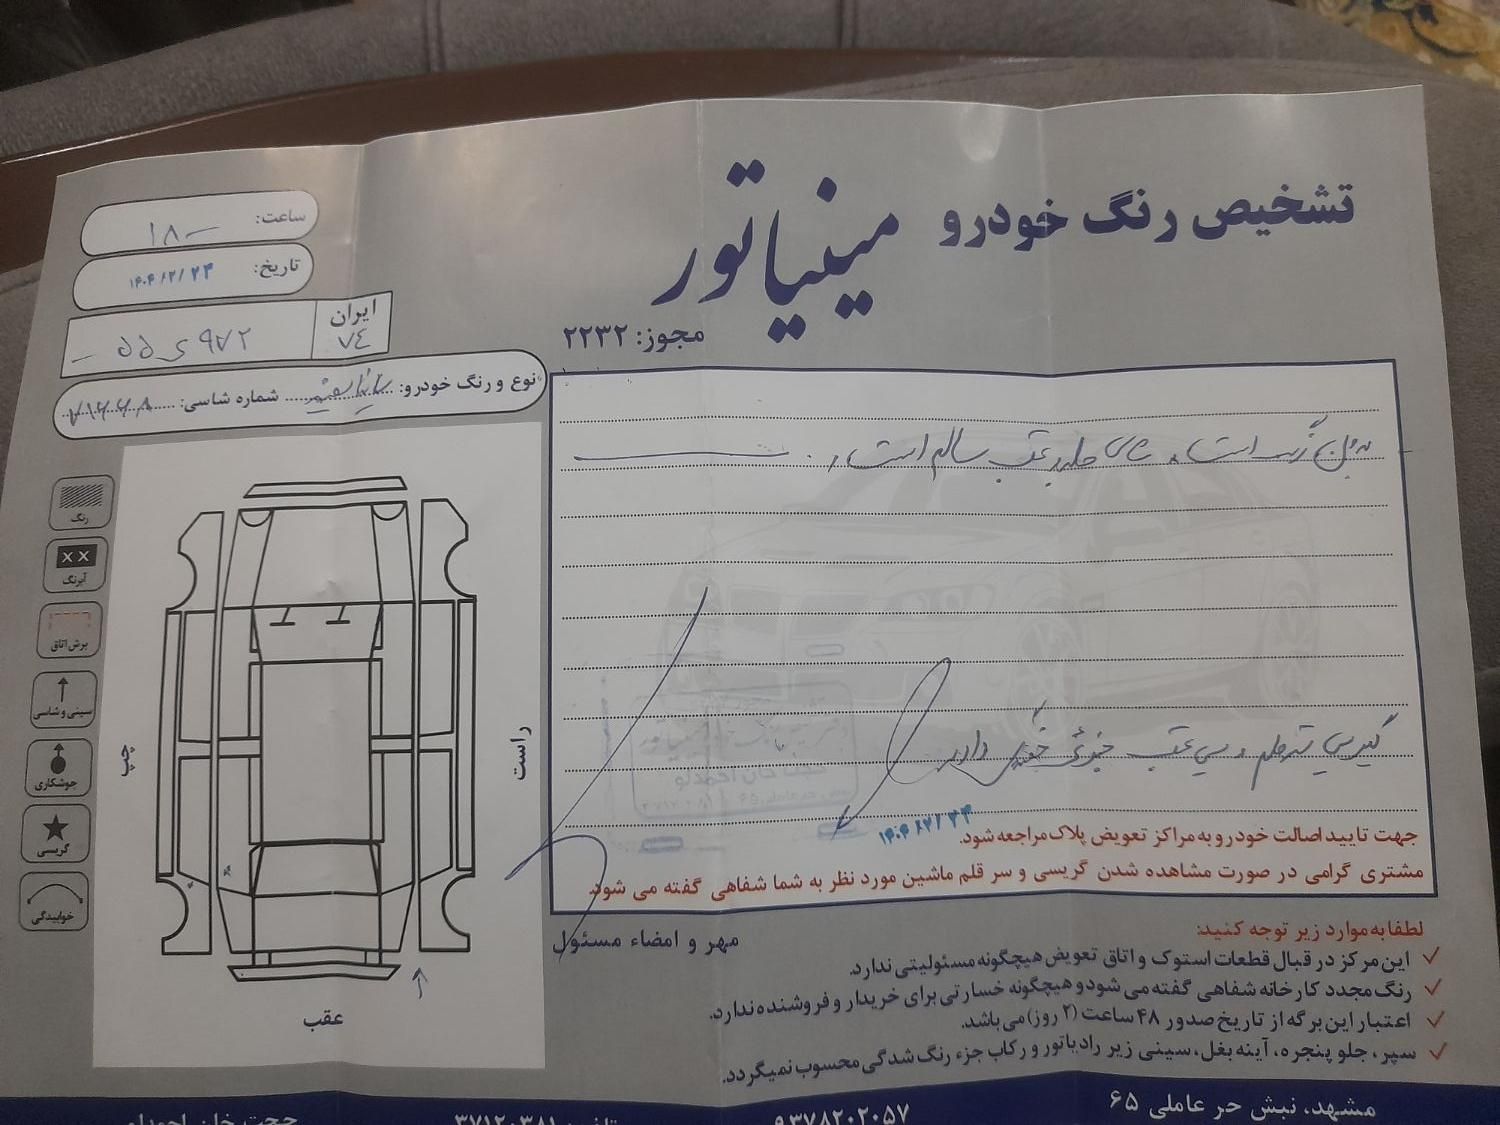 تشخیص رنگ خودرو مینیاتور
مجوز: ۲۲۳۲
ساعت: ۱۸ –
تاریخ: ۱۴۰۴/۲/۲۴
ایران ۷۴
۹۷۲ ی ۵۵ –
نوع و رنگ خودرو: سایپا سفید شماره شاسی:
بدون رنگ است، شاسی جلو و عقب سالم است،
گیربسی سرقلم و سینی عقب جزئی خوردگی دارد
۱۴۰۴/۲/۲۴
جهت تایید اصالت خودرو به مراکز تعویض پلاک مراجعه شود.
مشتری گرامی در صورت مشاهده شدن گریسی و سر قلم ماشین مورد نظر به شما شفاهی گفته می شود.
مهر و امضاء مسئول
رنگ
آبرنگ
برش اتاق
سینی و شاسی
جوشکاری
گریسی
خوابیدگی
چپ
راست
عقب
لطفا به موارد زیر توجه کنید:
این مرکز در قبال قطعات استوک و اتاق تعویض هیچگونه مسئولیتی ندارد.
رنگ مجدد کارخانه شفاهی گفته می شود و هیچگونه خسارتی برای خریدار و فروشنده ندارد.
اعتبار این برگه از تاریخ صدور ۴۸ ساعت (۲ روز) می باشد.
سپر، جلو پنجره، آینه بغل، سینی زیر رادیاتور و رکاب جزء رنگ شدگی محسوب نمیگردد.
مشهد، نبش حر عاملی ۶۵
۰۹۳۷۸۲۰۲۰۵۷
تلفن: ۳۷۱۲۰۳۸۱
حجت خان احمدلو